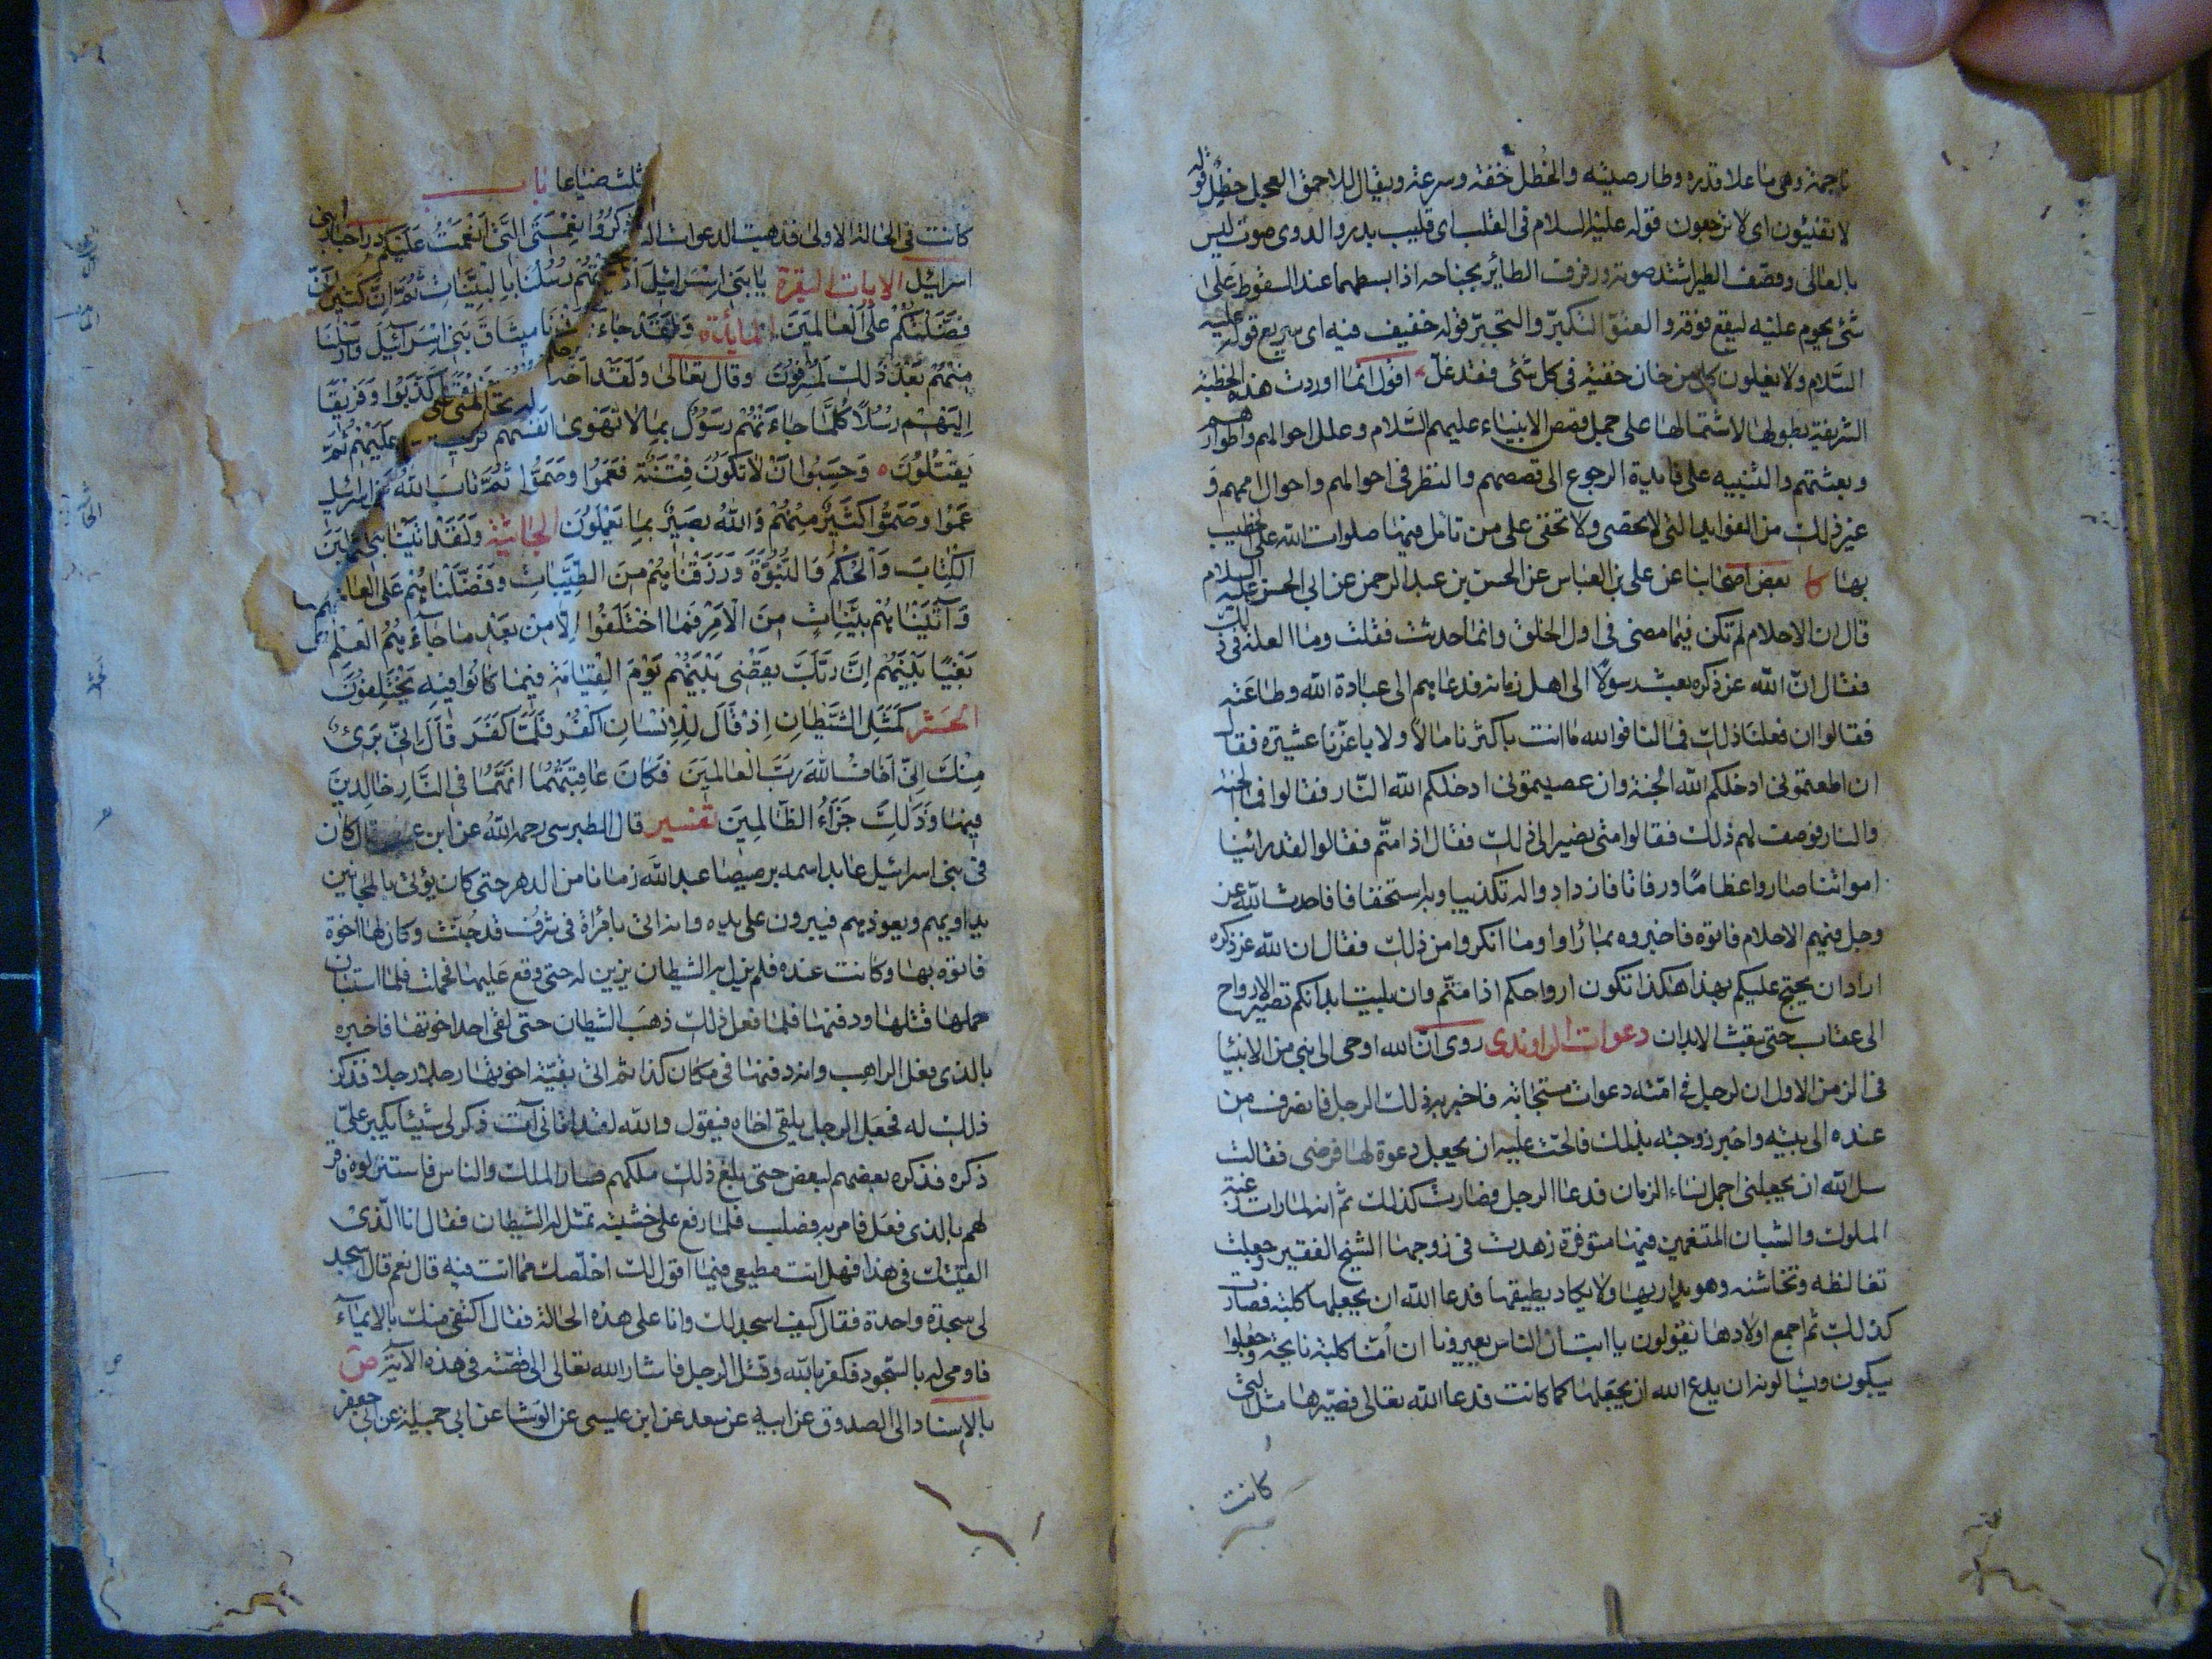 ناجمة وهی ما علا قدره وطار صیته والخطل خفة وسرعة ویقال للاحمق العجل خطل قوله
لا تفیئون ای لا ترجعون قوله علیه السلام فی القلب ای قلیب بدر والدوی صوت لیس
بالعالی وقصف الطیر اشتد صوته ورفرف الطائر بجناحه اذا بسطهما عند السقوط علی
شئ یحوم علیه لیقع فوقه والعنق التکبر والتجبر قوله خفیف فیه ای سریع قوله علیه
السلام ولا یغلون کل من خان خفیة فی کل شئی فقد غل اقول انما اوردت هذه الخطبة
الشریفة بطولها لاشتمالها علی جمل قصص الانبیاء علیهم السلام وعلل احوالهم واطوارهم
وبعثتهم والتنبیه علی فایدة الرجوع الی قصصهم والنظر فی احوالهم واحوال اممهم و
غیر ذلک من الفواید التی لا تحصی ولا تخفی علی من تامل فیها صلوات الله علی الخطیب
بها کا بعض اصحابنا عن علی بن العباس عن الحسن بن عبد الرحمن عن ابی الحسن علیه السلام
قال ان الاحلام لم تکن فیما مضی فی اول الخلق وانما حدثت فقلت وما العلة فی ذلک
فقال ان الله عز ذکره بعث رسولا الی اهل زمانه فدعاهم الی عبادة الله وطاعته
فقالوا ان فعلنا ذلک فما لنا فوالله ما انت باکثرنا مالا ولا باعزنا عشیرة فقال
ان اطعتمونی ادخلکم الله الجنة وان عصیتمونی ادخلکم الله النار فقالوا فما الجنة
والنار فوصف لهم ذلک فقالوا متی نصیر الی ذلک فقال اذا متم فقالوا لقد رائینا
امواتنا صاروا عظاما ورفاتا فازدادوا له تکذیبا وبه استخفافا فاحدث الله عز
وجل فیهم الاحلام فاتوه فاخبروه بما رأوا وما انکروا من ذلک فقال ان الله عز ذکره
اراد ان یحتج علیکم بهذا هکذا تکون ارواحکم اذا متم وان بلیت ابدانکم تصیر الارواح
الی عقاب حتی تبعث الابدان دعوات الراوندی روی ان الله اوحی الی نبی من الانبیا
فی الزمن الاول ان لرجل فی امته دعوات مستجابة فاخبر به ذلک الرجل فانصرف من
عنده الی بیته واخبر زوجته بذلک فالحت علیه ان یجعل دعوة لها فرضی فقالت
سل الله ان یجعلنی اجمل نساء الزمان فدعا الرجل فصارت کذلک ثم انها لما رات رغبة
الملوک والشبان المتنعمین فیها متوفرة زهدت فی زوجها الشیخ الفقیر وجعلت
تغالظه وتخاشنه وهو یداریها ولا یکاد یطیقها فدعا الله ان یجعلها کلبة فصارت
کذلک ثم اجمع اولادها یقولون یا ابت ان الناس یعیرونا ان أمنا کلبة نابحة وجعلوا
یبکون ویسألونه ان یدع الله ان یجعلها کما کانت فدعا الله تعالی فصیرها مثل التی
کانت
کانت فی الحالة الاولی فذهبت الدعوات الثلث ضیاعا باب
اسرائیل الایات البقرة یا بنی اسرائیل اذکروا نعمتی التی انعمت علیکم وانی
فضلتکم علی العالمین المائدة ولقد جاءتهم رسلنا بالبینات ثم ان کثیرا
منهم بعد ذلک لمسرفون وقال تعالی ولقد اخذنا میثاق بنی اسرائیل وارسلنا
الیهم رسلا کلما جاءتهم رسول بما لا تهوی انفسهم فریقا کذبوا وفریقا
یقتلون وحسبوا ان لا تکون فتنة فعموا وصموا ثم تاب الله علیهم ثم
عموا وصموا کثیر منهم والله بصیر بما یعملون الجاثیة ولقد اتینا بنی اسرائیل
الکتاب والحکم والنبوة ورزقناهم من الطیبات وفضلناهم علی العالمین
وآتیناهم بینات من الامر فما اختلفوا الا من بعد ما جاءهم العلم
بغیا بینهم ان ربک یقضی بینهم یوم القیامة فیما کانوا فیه یختلفون
الحشر کمثل الشیطان اذ قال للانسان اکفر فلما کفر قال انی برئ
منک انی اخاف الله رب العالمین فکان عاقبتهما انهما فی النار خالدین
فیها وذلک جزاء الظالمین تفسیر قال الطبرسی رحمه الله عن ابن عباس قال کان
فی بنی اسرائیل عابد اسمه برصیصا عبد الله زمانا من الدهر حتی کان یؤتی بالمجانین
یداویهم ویعوذهم فیبرون علی یده وانه اتی بامرأة فی شرف قد جنت وکان لها اخوة
فاتوه بها وکانت عنده فلم یزل به الشیطان یزین له حتی وقع علیها فحملت فلما استبان
حملها قتلها ودفنها فلما فعل ذلک ذهب الشیطان حتی لقی احد اخوتها فاخبره
بالذی فعل الراهب وانه دفنها فی مکان کذا ثم اتی بقیة اخوتها رجلا رجلا فذکر
ذلک له فجعل الرجل یلقی اخاه فیقول والله لقد اتانی آت فذکر لی شیئا یکبر علی
ذکره فذکره بعضهم لبعض حتی بلغ ذلک ملکهم فسار الملک والناس فاستنزلوه فاقر
لهم بالذی فعل فامر به فصلب فلما رفع علی خشبته تمثل له الشیطان فقال انا الذی
القیتک فی هذا فهل انت مطیعی فیما اقول لک اخلصک مما انت فیه قال نعم قال اسجد
لی سجدة واحدة فقال کیف اسجد لک وانا علی هذه الحالة فقال اکتفی منک بالایماء
فاومی له بالسجود فکفر بالله وقتل الرجل فاشار الله تعالی الی قصته فی هذه الآیة ص
بالاسناد الی الصدوق عن ابیه عن سعد عن ابن عیسی عن الوشا عن ابی جمیلة عن ابی جعفر